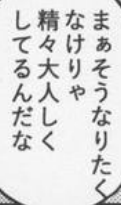 まぁそうなりたく
なけりゃ
精々大人しく
してるんだな